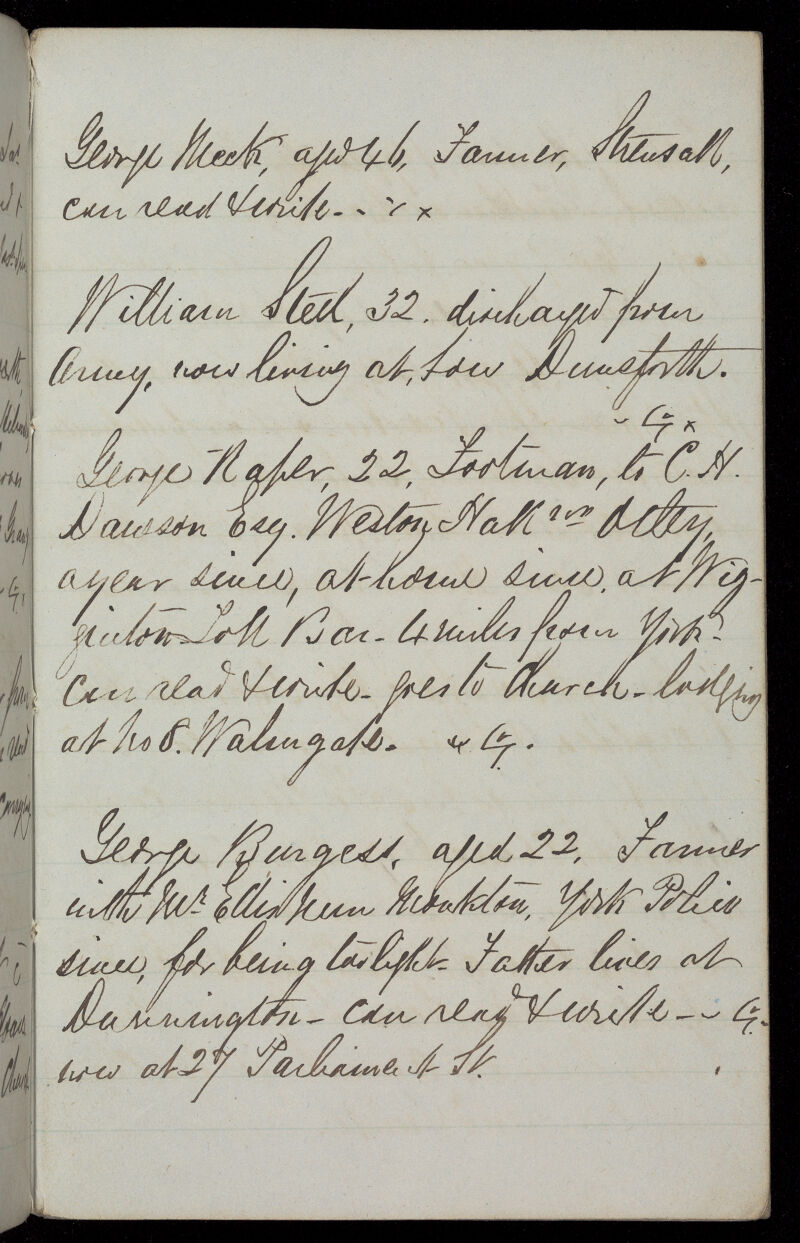 George Meek, aged 46, Farmer, Strensall,
can read & write - - x
William Steel, 32. discharged from
Army, now living at, Low Dunsforth.
- G x
George Raper, 22, Footman, to C. H.
Dawson Esq. Weston Hall nr Otley,
a year since, at home since, at Wig-
ginton Toll Bar - 4 miles from York -
can read & write - goes to Church - lodging
at No 8. Walmgate. x G.
George Burgess, aged 22, Farmer
with Mr Ellis Nun Monkton, York Police
since, for being too light - Father lives at
Dunnington - can read & write - - G.
now at 27 Parliament St.